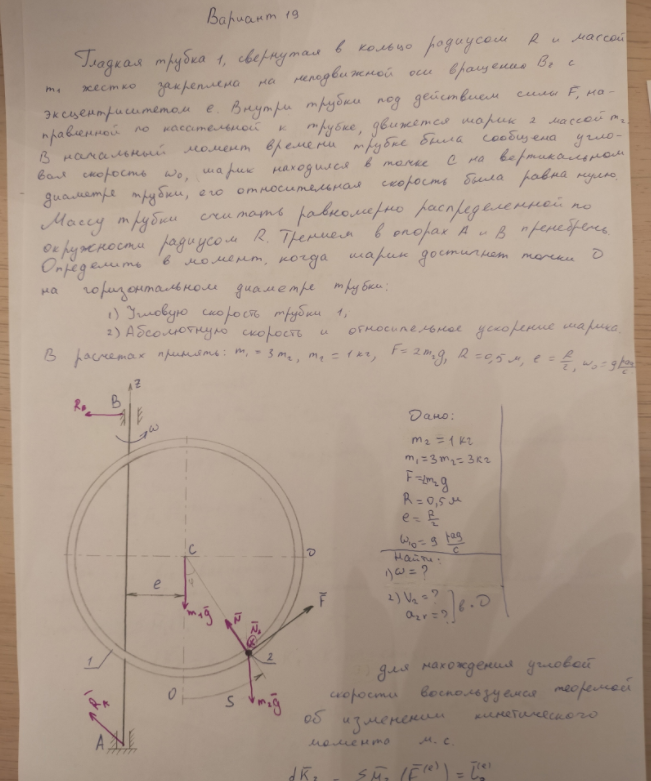 Вариант 19
Гладкая трубка 1, свернутая в кольцо радиусом R и массой
m₁ жестко закреплена на неподвижной оси вращения Bz с
эксцентриситетом e. Внутри трубки под действием силы F, на-
правленной по касательной к трубке, движется шарик 2 массой m₂
В начальный момент времени трубке была сообщена угло-
вая скорость ω₀, шарик находился в точке C на вертикальном
диаметре трубки, его относительная скорость была равна нулю.
Массу трубки считать равномерно распределенной по
окружности радиусом R. Трением в опорах A и B пренебречь.
Определить в момент, когда шарик достигнет точки D
на горизонтальном диаметре трубки:
1) Угловую скорость трубки 1,
2) Абсолютную скорость и относительное ускорение шарика.
В расчетах принять: m₁ = 3m₂, m₂ = 1 кг, F = 2m₂g, R = 0,5 м, e = R/2, ω₀ = 9 рад/с
z
B
ω
C
D
e
m₁g
F
N
1
2
O
S
m₂g
A
Дано:
m₂ = 1 кг
m₁ = 3m₂ = 3 кг
F = 2m₂g
R = 0,5 м
e = R/2
ω₀ = 9 рад/с
Найти:
1) ω = ?
2) V₂ = ?
a₂r = ?
в т. D
для нахождения угловой
скорости воспользуемся теоремой
об изменении кинетического
момента м.с.